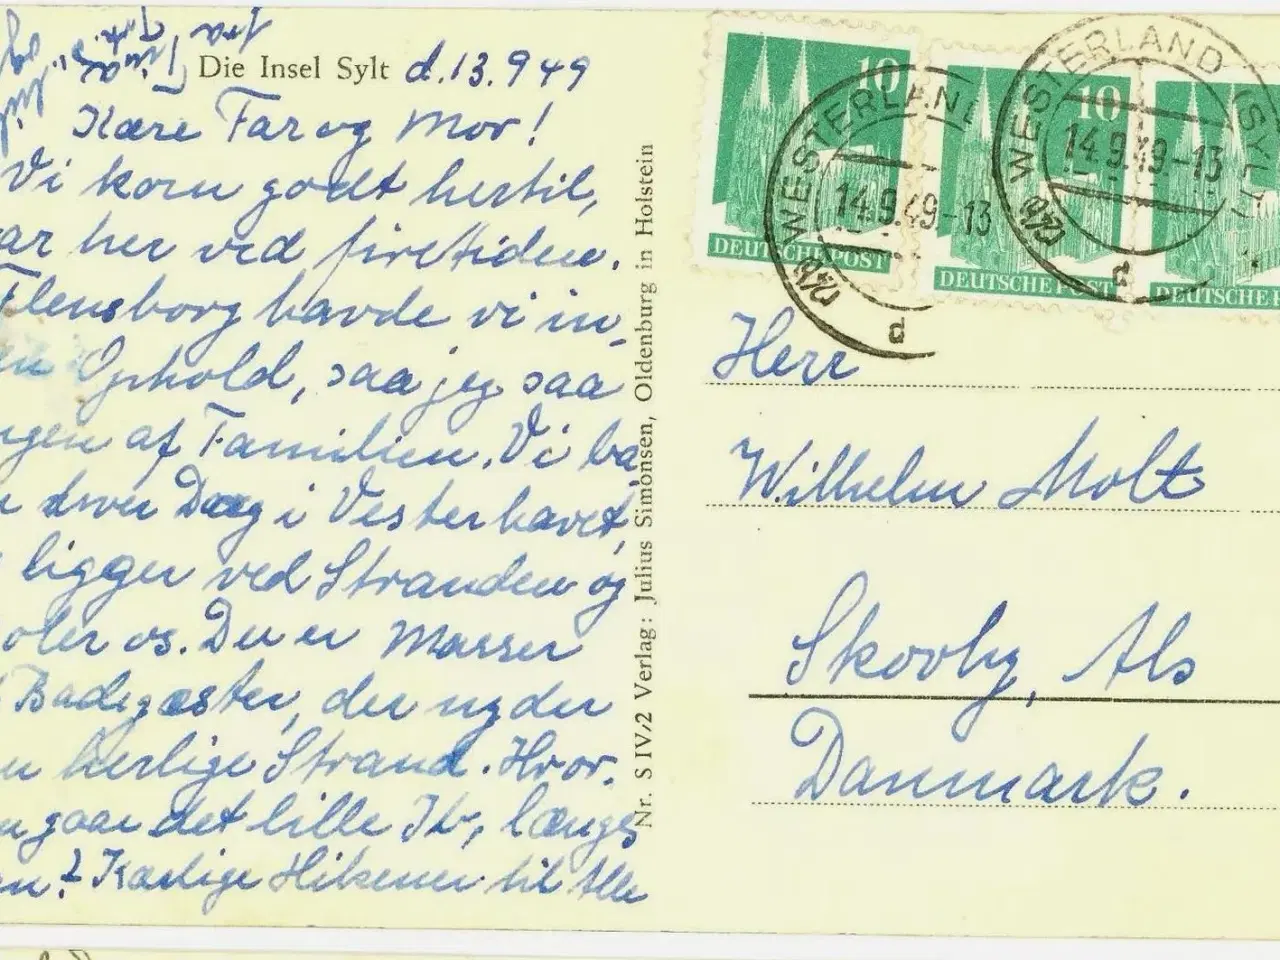 Die Insel Sylt d. 13.9 49
Kære Far og Mor!
Vi kom godt hertil,
ar her ved firetiden.
Flensborg havde vi in-
en Ophold, saa jeg saa
ngen af Familien. Vi ba-
r hver Dag i Vesterhavet,
ligger ved Stranden og
oler os. Der er Masser
Badegæster, der nyder
n herlige Strand. Hvor-
n gaar det lille Ib, længes
en? Kærlige Hilsener til Alle
fra
Nr. S IV/2 Verlag: Julius Simonsen, Oldenburg in Holstein
10
DEUTSCHE POST
10
DEUTSCHE POST
DEUTSCHE P
WESTERLAND
14.9.49-13
d
WESTERLAND (SYLT)
14.9.49-13
d
Herr
Wilhelm Molt
Skovby, Als
Danmark.